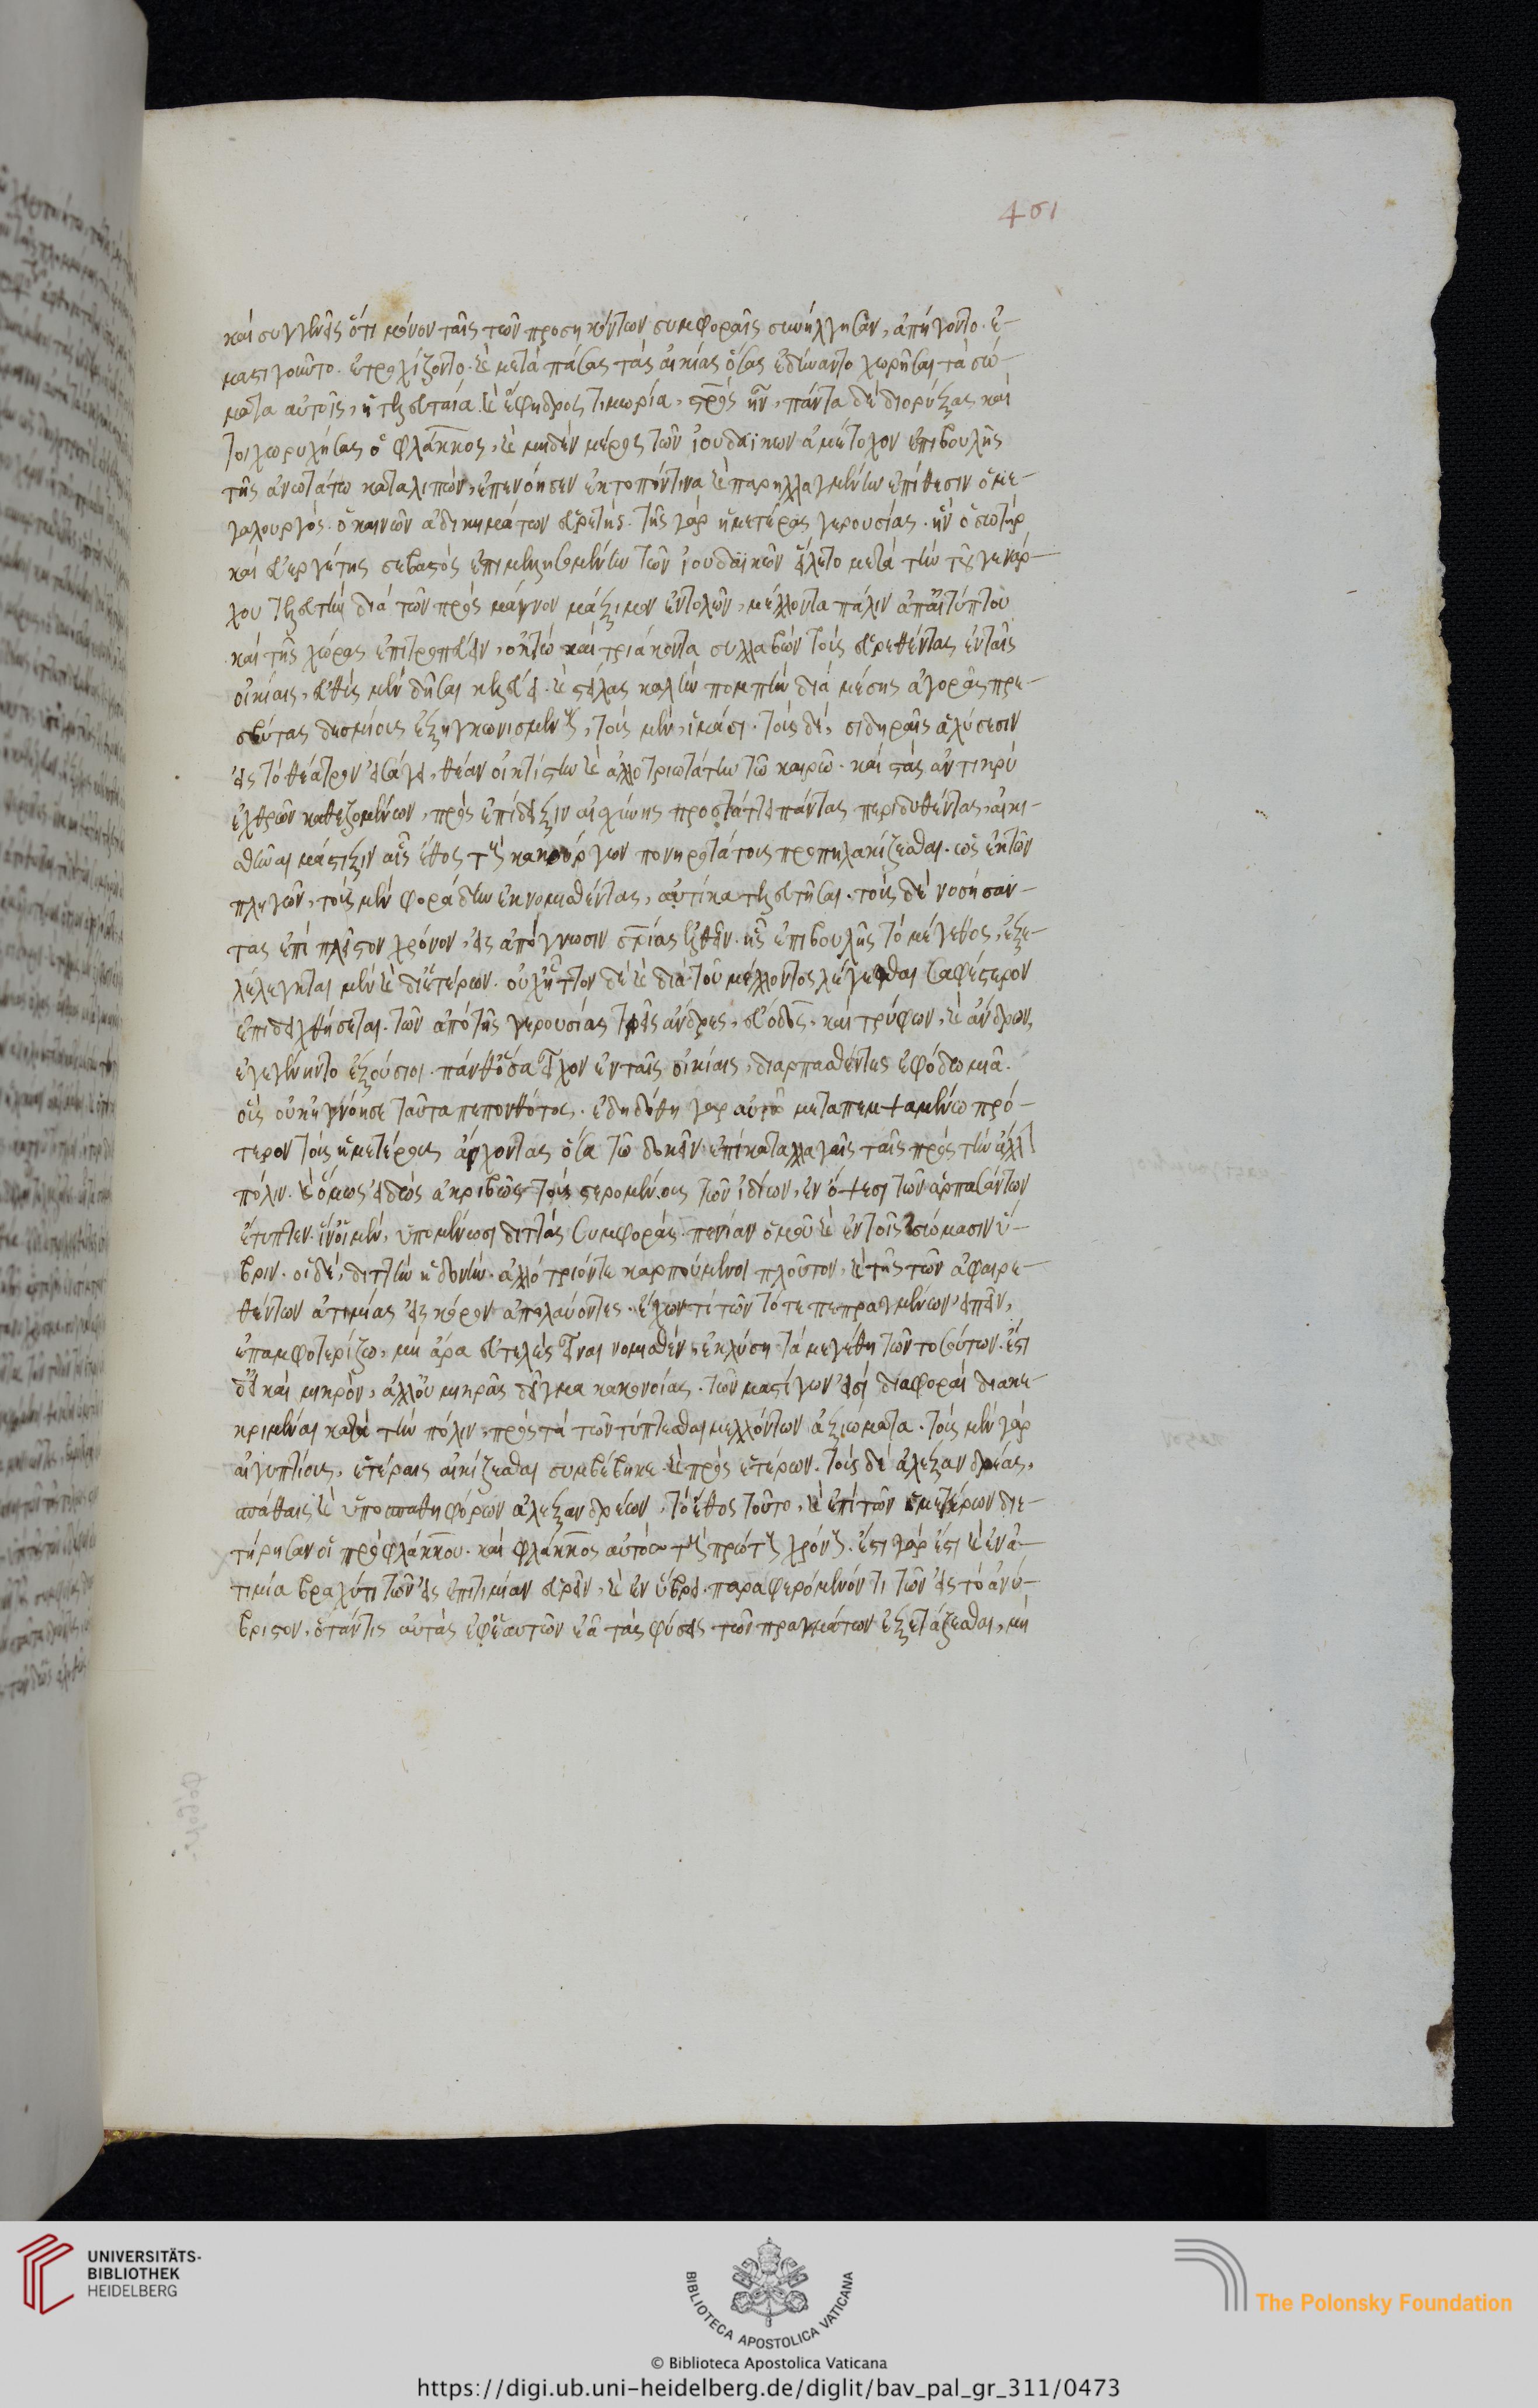 461
καὶ συγγενεῖς ὅτι μόνον ταῖς τῶν προσηκόντων συμφοραῖς συνήλγησαν, ἀπήγοντο. ἐ-
μαστιγοῦντο. ἐτροχίζοντο. καὶ μετὰ πάσας τὰς αἰκίας ὅσας ἐδύναντο χωρῆσαι τὰ σώ-
ματα αὐτοῖς, ἡ τελευταία καὶ ἔφεδρος τιμωρία, σταυρὸς ἦν, πάντα δὲ διορύξας καὶ
τοιχωρυχήσας ὁ φλάκκος, καὶ μηδὲν μέρος τῶν ἰουδαϊκῶν ἀμέτοχον ἐπιβουλῆς
τῆς ἀνωτάτω καταλιπών, ἐπενόησεν ἔκτοπόν τινα καὶ παρηλλαγμένην ἐπίθεσιν ὁ με-
γαλουργός. ὁ καινῶν ἀδικημάτων εὑρετής. τῆς γὰρ ἡμετέρας γερουσίας. ἣν ὁ σωτὴρ
καὶ εὐεργέτης σεβαστὸς ἐπιμελησομένην τῶν ἰουδαϊκῶν εἵλετο μετὰ τὴν τοῦ γενάρ-
χου τελευτὴν διὰ τῶν πρὸς μάγνον μάξιμον ἐντολῶν, μέλλοντα πάλιν ἀπ' αἰγύπτου
καὶ τῆς χώρας ἐπιτροπεύειν, ὀκτὼ καὶ τριάκοντα συλλαβὼν τοὺς εὑρεθέντας ἐν ταῖς
οἰκίαις, εὐθὺς μὲν δῆσαι κελεύει. καὶ στείλας καλὴν πομπὴν διὰ μέσης ἀγορᾶς πρε-
σβύτας δεσμίους ἐξηγκωνισμένους, τοὺς μὲν, ἱμᾶσι. τοὺς δὲ, σιδηραῖς ἁλύσεσιν
εἰς τὸ θέατρον εἰσάγει, θέαν οἰκτίστην καὶ ἀλλοτριωτάτην τῷ καιρῷ. καὶ στὰς ἀντικρὺ
ἐχθρῶν καθεζομένων, πρὸς ἐπίδειξιν αἰσχύνης προστάττει πάντας περιδυθέντας, αἰκι-
σθῆναι μάστιξιν αἷς ἔθος τοὺς κακούργων πονηροτάτους προπηλακίζεσθαι. ὡς ἐκ τῶν
πληγῶν, τοὺς μὲν φοράδην ἐκκομισθέντας, αὐτίκα τελευτῆσαι. τοὺς δὲ νοσήσαν-
τας ἐπὶ πλεῖστον χρόνον, εἰς ἀπόγνωσιν σωτηρίας ἐλθεῖν. ἧς ἐπιβουλῆς τὸ μέγεθος, ἐξε-
λήλεγκται μὲν καὶ δι' ἑτέρων. οὐχ ἧττον δὲ καὶ διὰ τοῦ μέλλοντος λέγεσθαι σαφέστερον
ἐπιδειχθήσεται. τῶν ἀπὸ τῆς γερουσίας τρεῖς ἄνδρες, εὔοδος. καὶ τρύφων, καὶ ἄνδρων,
ἐγεγένηντο ἐξούσιοι. πάνθ' ὅσα εἶχον ἐν ταῖς οἰκίαις, διαρπασθέντες ἐφόδῳ μιᾷ.
οὓς οὐκ ἠγνόησε ταῦτα πεπονθότας. ἐδηλώθη γὰρ αὐτῷ μεταπεμψαμένῳ πρό-
τερον τοὺς ἡμετέρους ἄρχοντας ὅσα τῷ δοκεῖν ἐπὶ καταλλαγαῖς ταῖς πρὸς τὴν ἄλλην
πόλιν. καὶ ὅμως εἰδὼς ἀκριβῶς τοὺς στερομένους τῶν ἰδίων, ἐν ὄψεσι τῶν ἁρπασάντων
ἔτυπτεν. ἵν' οἱ μὲν, ὑπομένωσι διττὰς συμφορὰς. πενίαν ὁμοῦ καὶ ἐν τοῖς σώμασιν ὕ-
βριν. οἱ δὲ, διττὴν ἡδονὴν. ἀλλότριόν τε καρπούμενοι πλοῦτον, καὶ τῆς τῶν ἀφαιρε-
θέντων ἀτιμίας εἰς κόρον ἀπολαύοντες. ἔχων τι τῶν τότε πεπραγμένων εἰπεῖν,
ἐπαμφοτερίζω, μὴ ἄρα εὐτελὲς εἶναι νομισθέν, ἐκλύσῃ τὰ μεγέθη τῶν τοσούτων. ἔστι
δ' εἰ καὶ μικρόν, ἀλλ' οὐ μικρᾶς δεῖγμα κακονοίας. τῶν μαστίγων εἰσὶ διαφοραὶ διακε-
κριμέναι κατὰ τὴν πόλιν, πρὸς τὰ τῶν τύπτεσθαι μελλόντων ἀξιώματα. τοὺς μὲν γὰρ
αἰγυπτίους, ἑτέραις αἰκίζεσθαι συμβέβηκε. καὶ πρὸς ἑτέρων. τοὺς δὲ ἀλεξανδρέας,
σπάθαις καὶ ὑπὸ σπαθηφόρων ἀλεξανδρέων, τὸ ἔθος τοῦτο, καὶ ἐπὶ τῶν ἡμετέρων διε-
τήρησαν οἱ πρὸ φλάκκου. καὶ φλάκκος αὐτὸς τοὺς πρώτους χρόνους. ἔστι γὰρ ἔστι καὶ ἐν ἀ-
τιμίᾳ βραχύ τι τῶν εἰς ἐπιτιμίαν εὑρεῖν, καὶ ἐν ὕβρει παραφερόμενόν τι τῶν εἰς τὸ ἀνύ-
βριστον. ὅταν τις αὐτὰς ἐφ' ἑαυτῶν ἐᾷ τὰς φύσεις τῶν πραγμάτων ἐξετάζεσθαι, μὴ
UNIVERSITÄTS-
BIBLIOTHEK
HEIDELBERG
BIBLIOTECA APOSTOLICA VATICANA
The Polonsky Foundation
© Biblioteca Apostolica Vaticana
https://digi.ub.uni-heidelberg.de/diglit/bav_pal_gr_311/0473